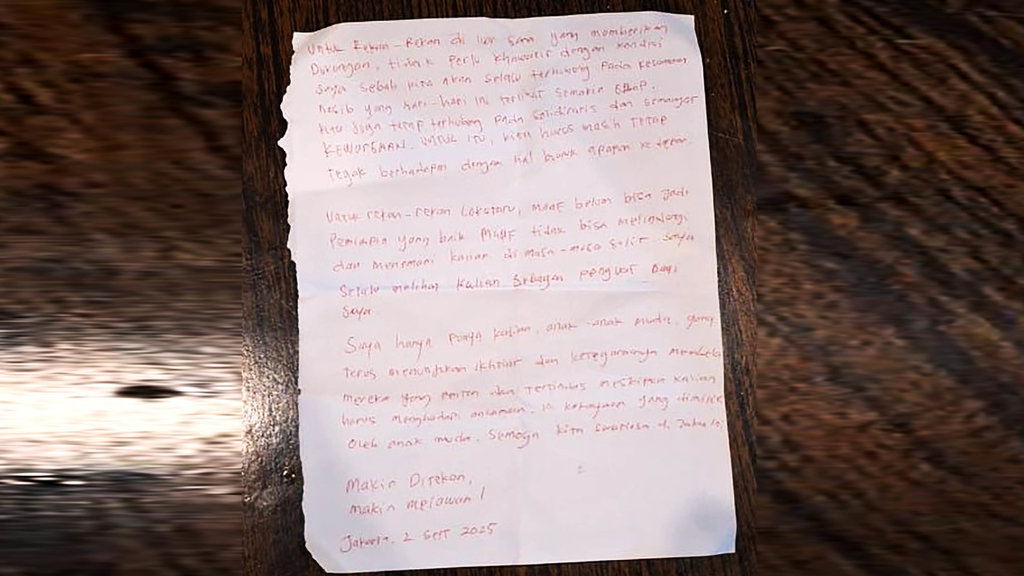 Untuk Rekan-Rekan di luar sana yang memberikan
Dukungan, tidak perlu khawatir dengan kondisi
saya sebab kita akan selalu terhubung pada kesamaan
nasib yang hari-hari ini terlihat semakin gelap.
kita juga tetap terhubung pada solidaritas dan semangat
KEWARASAN. UNTUK ITU, kita harus masih tetap
tegak berhadapan dengan hal buruk apapun ke depan.
Untuk rekan-rekan Lokataru, maaf belum bisa jadi
Pemimpin yang baik maaf tidak bisa melindungi
dan menemani kalian di masa-masa sulit. Saya
selalu melihat kalian sebagai penguat bagi
saya.
Saya hanya punya kalian, anak-anak muda, yang
terus menunjukkan ikhtiar dan ketegarannya membela
mereka yang dan tertindas meskipun kalian
harus menghadapi ancaman. ini kekayaan yang dimiliki
oleh anak muda. Semoga kita di
Makin Ditekan,
makin melawan!
Jakarta, 2 Sept 2025